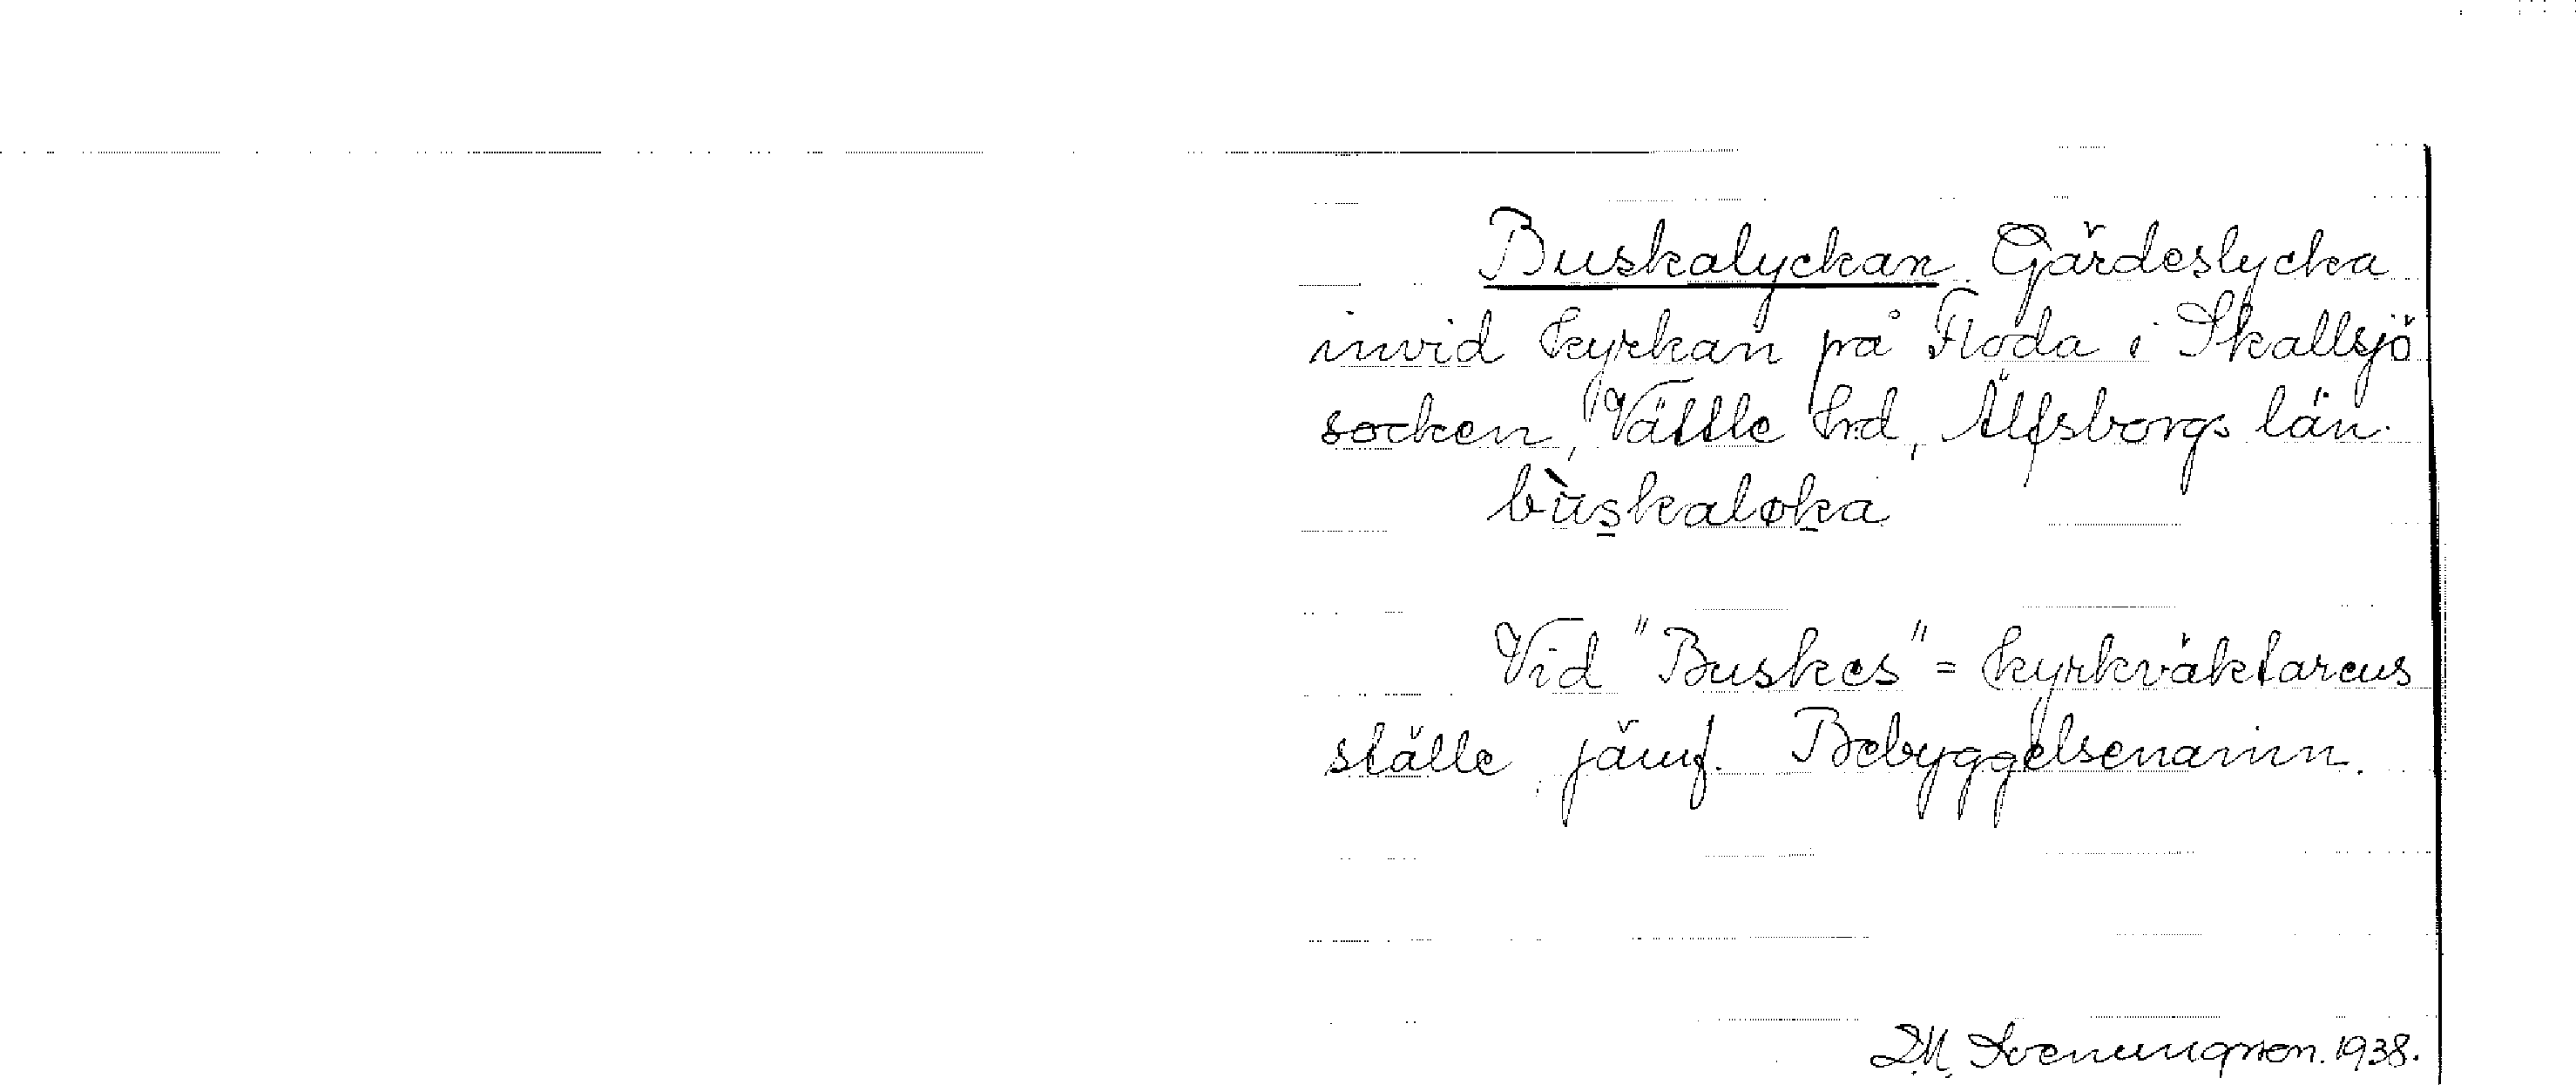 Buskalyckan. Gärdeslycka
invid kyrkan på Floda i Skallsjö
socken, Vättle hrd, Älfsborgs län.
bùskaløka
Vid "Buskes" = kyrkväktarens
ställe, jämf. Bebyggelsenamn.
D.M. Svenungsson. 1938.